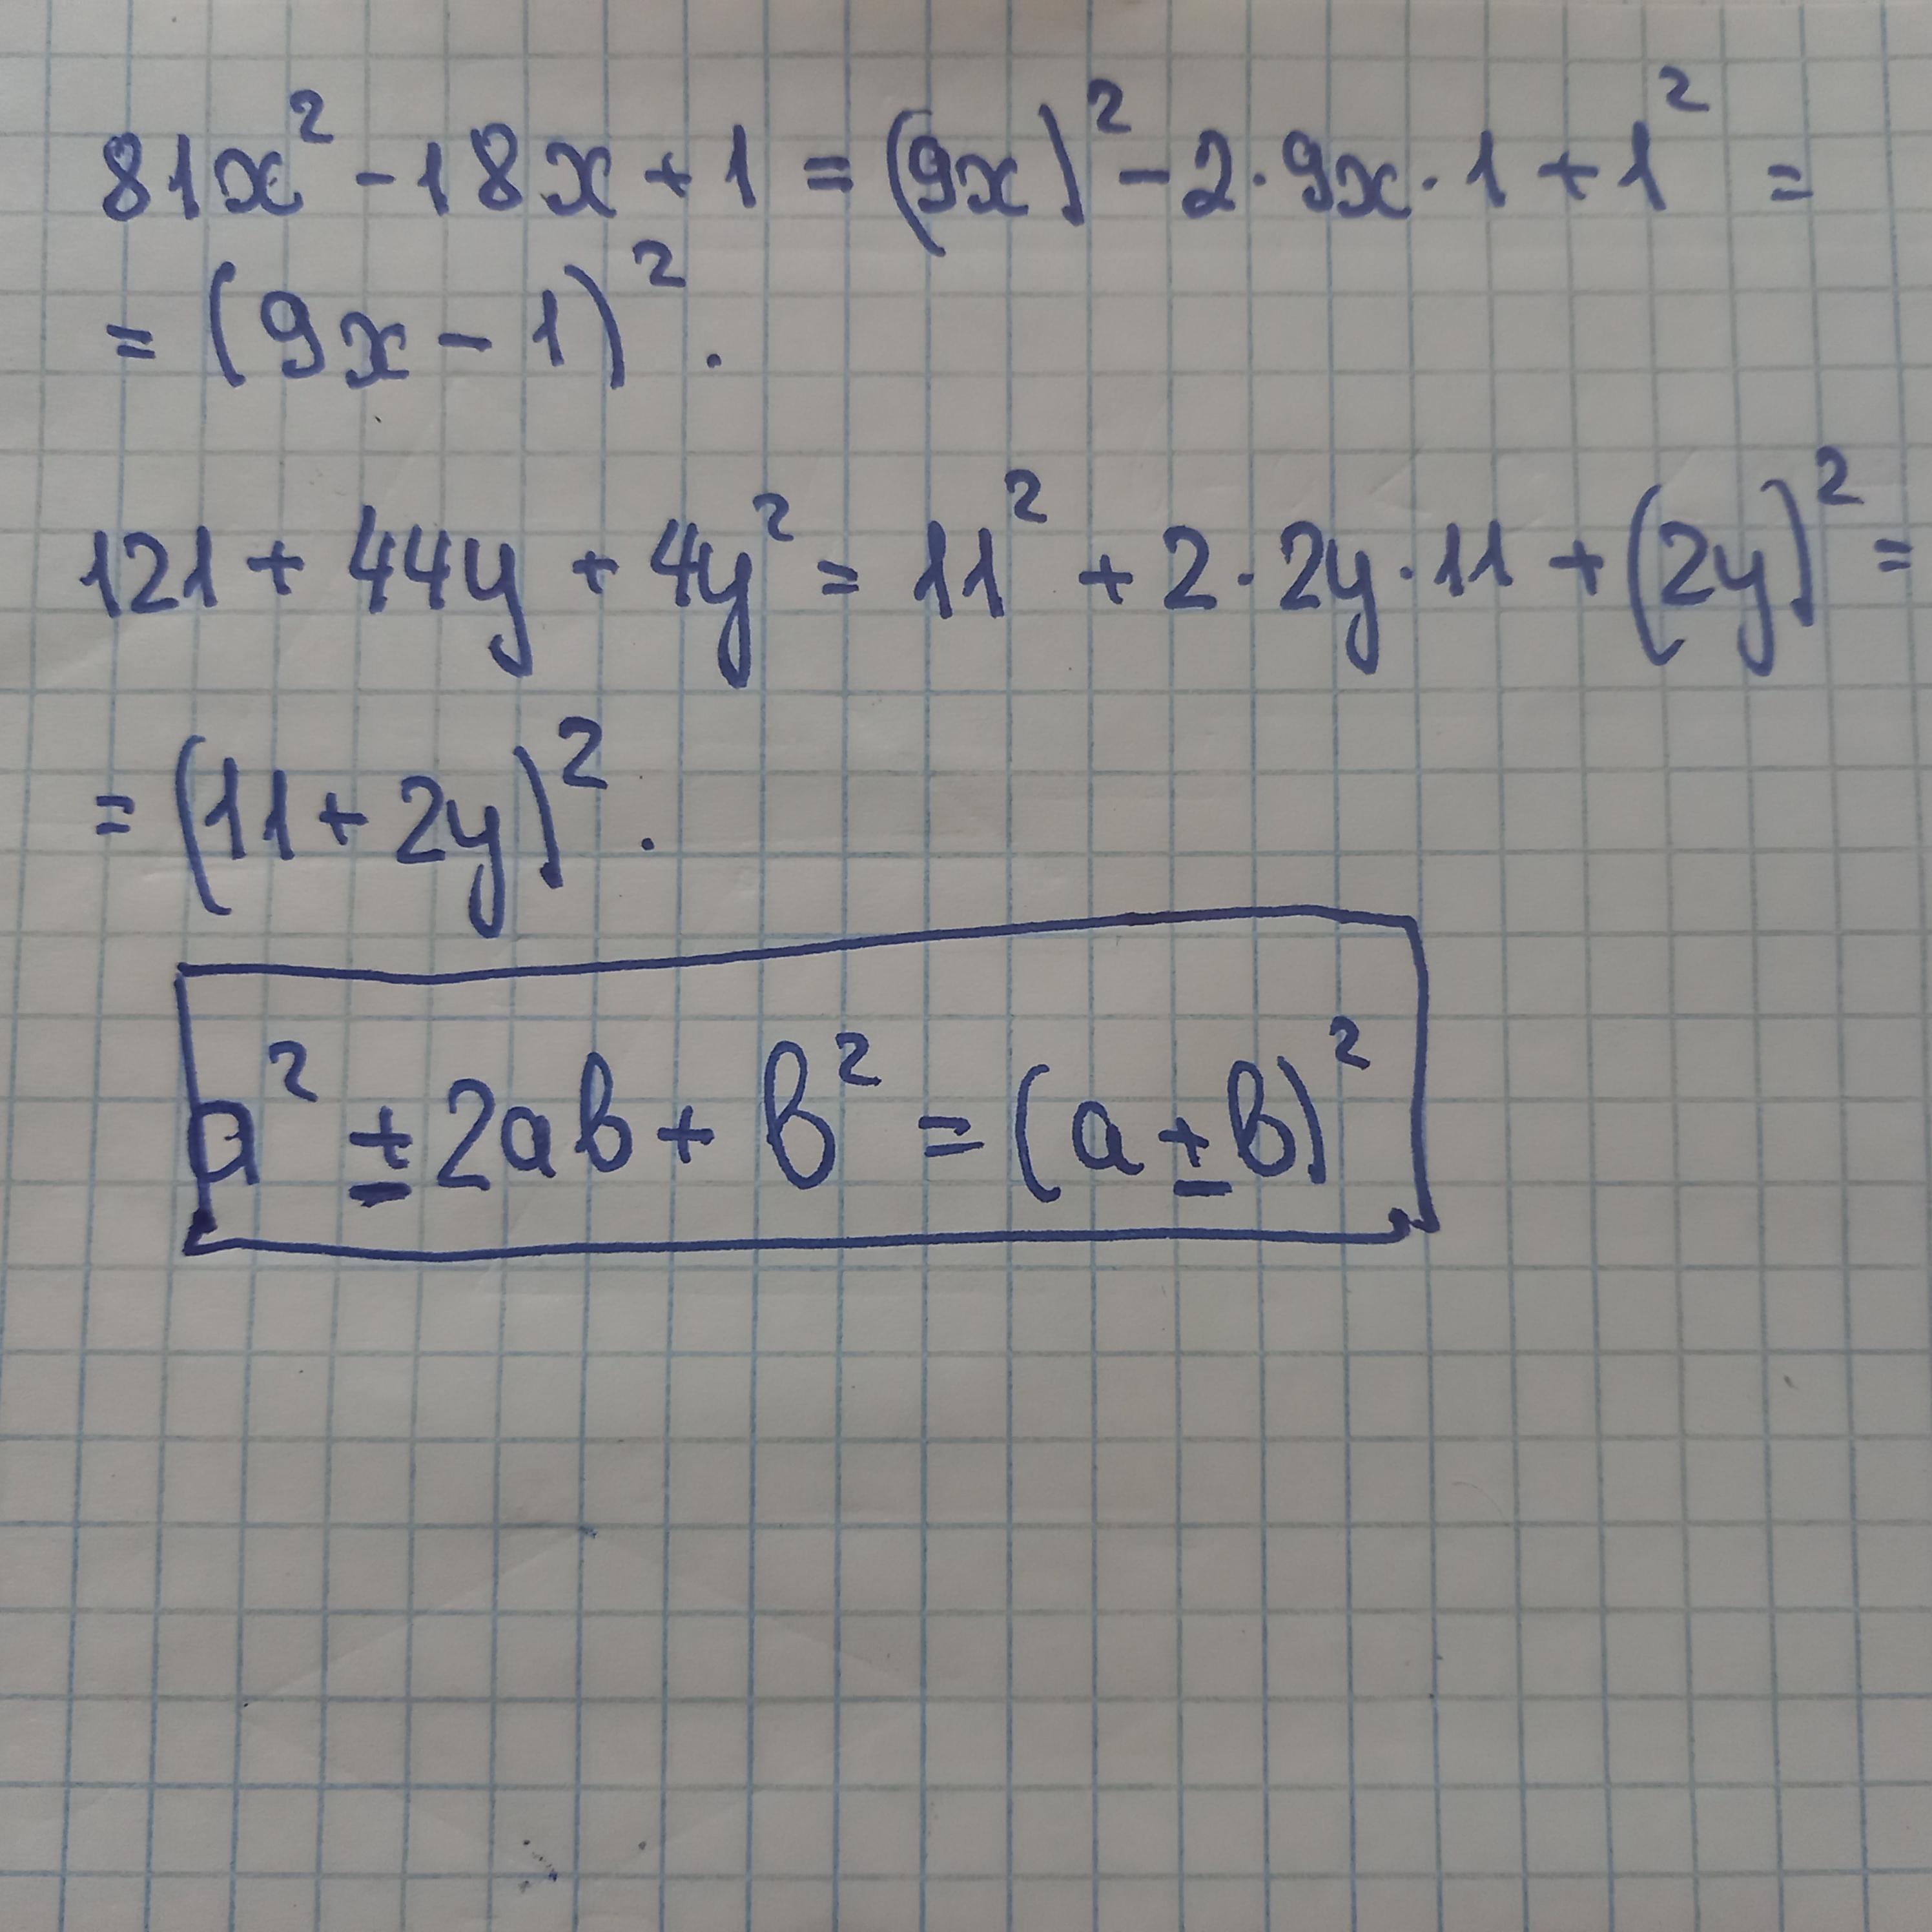 81x² - 18x + 1 = (9x)² - 2·9x·1 + 1² =
= (9x - 1)².
121 + 44y + 4y² = 11² + 2·2y·11 + (2y)² =
= (11 + 2y)².
a² ± 2ab + b² = (a ± b)²